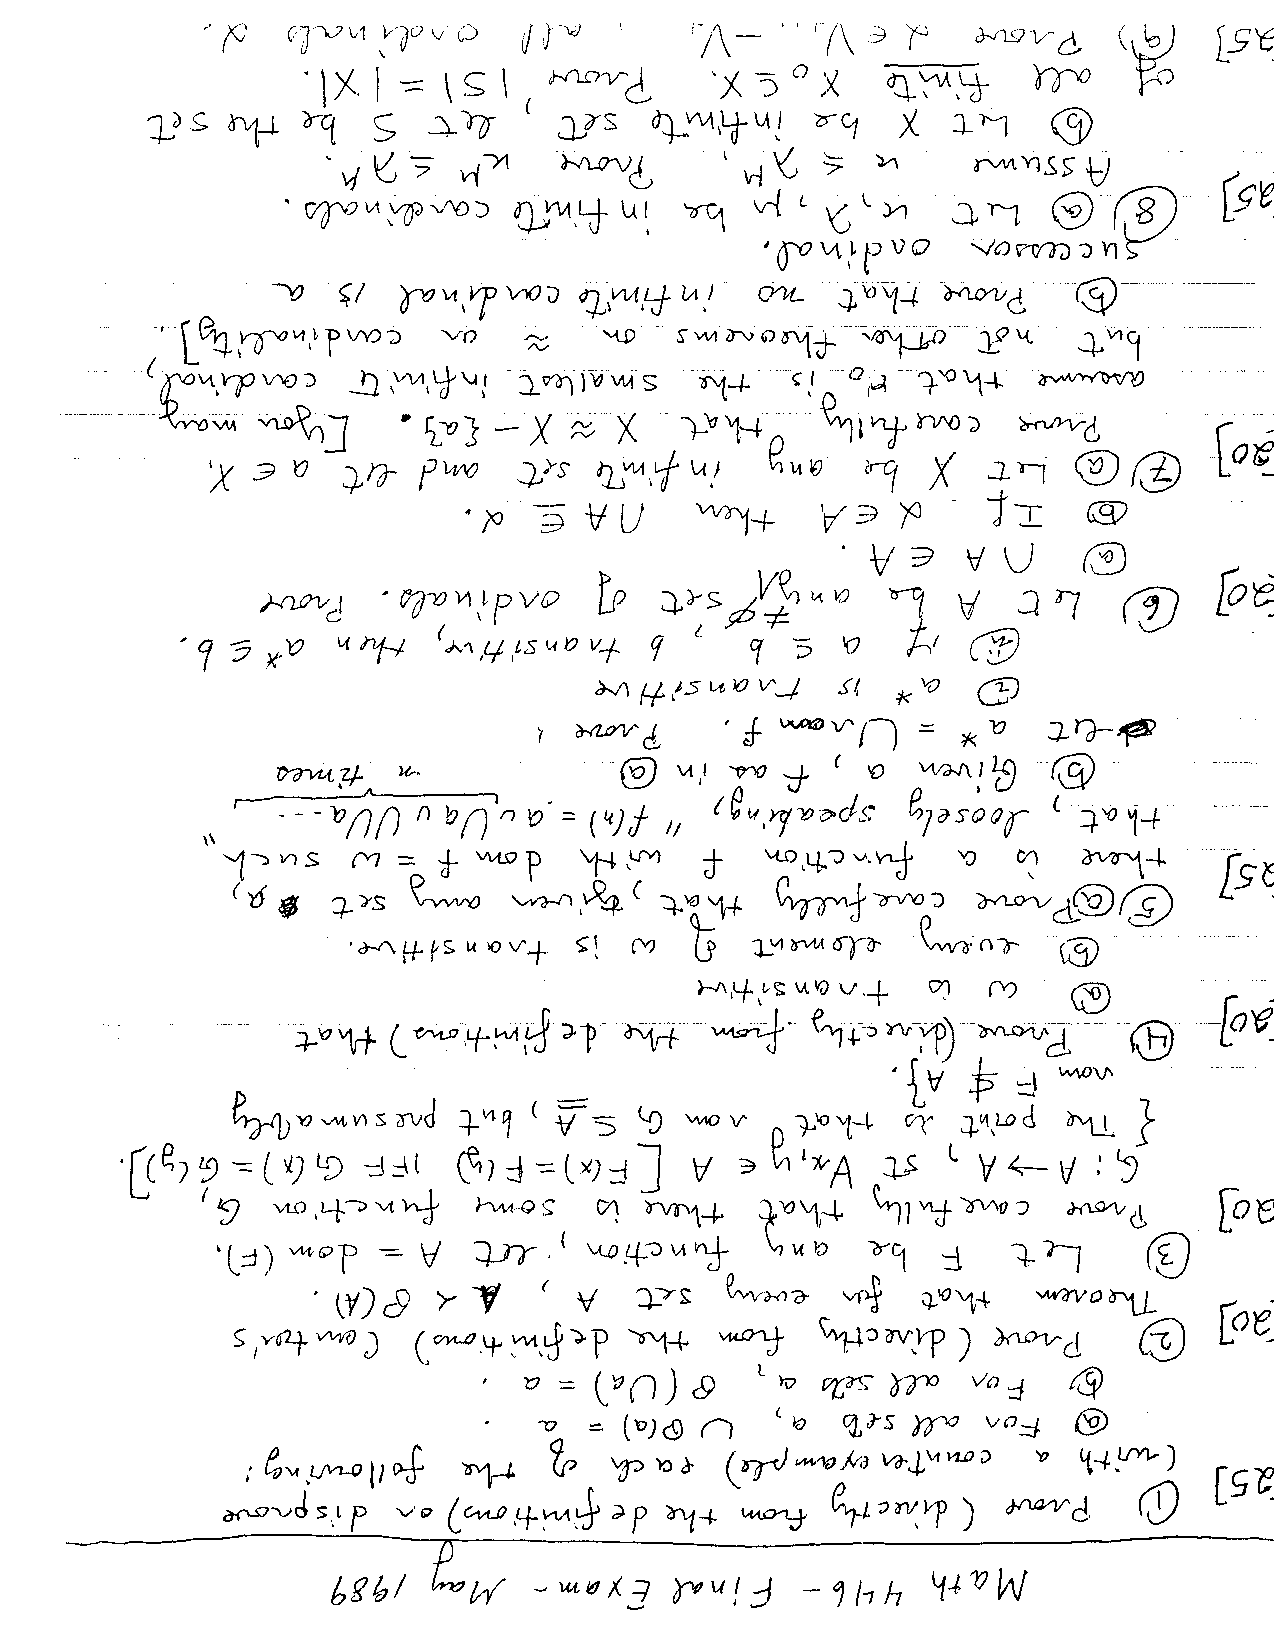 Math 446 - Final Exam - May 1989
25] ① Prove (directly from the definitions) or disprove
(with a counterexample) each of the following:
ⓐ For all sets a, ∪ 𝒫(a) = a .
ⓑ For all sets a, 𝒫(∪a) = a .
20] ② Prove (directly from the definitions) Cantor's
Theorem that for every set A, A ≺ 𝒫(A) .
③ Let F be any function, let A = dom (F).
20] Prove carefully that there is some function G,
G: A → A, st ∀x,y ∈ A [F(x) = F(y) IFF G(x) = G(y)].
{The point is that ran G ⊆ A, but presumably
ran F ⊄ A}.
20] ④ Prove (directly from the definitions) that
ⓐ ω is transitive
ⓑ every element of ω is transitive.
25] ⑤ ⓐ Prove carefully that, given any set a,
there is a function f with dom f = ω such
that, loosely speaking, "f(n) = a ∪ ∪a ∪ ∪∪a ...."
n times
ⓑ Given a, f as in ⓐ
let a* = ∪ ran f. Prove :
① a* is transitive
② if a ⊆ b, b transitive, then a* ⊆ b.
20] ⑥ Let A be any ≠∅ set of ordinals. Prove
ⓐ ∩A ∈ A.
ⓑ If α ∈ A then ∩A ⊆ α.
20] ⑦ ⓐ Let X be any infinite set and let a ∈ X.
Prove carefully that X ≈ X - {a}. [You may
assume that ℵ₀ is the smallest infinite cardinal,
but not other theorems on ≈ or cardinality].
ⓑ Prove that no infinite cardinal is a
successor ordinal.
25] ⑧ ⓐ Let κ, λ, μ be infinite cardinals.
Assume κ ≤ λ^μ. Prove κ^μ ≤ λ^μ.
ⓑ Let X be infinite set, let S be the set
of all finite X₀ ⊆ X. Prove |S| = |X|.
25] (9) Prove α ∈ V_{α+1} - V_α, all ordinals α.